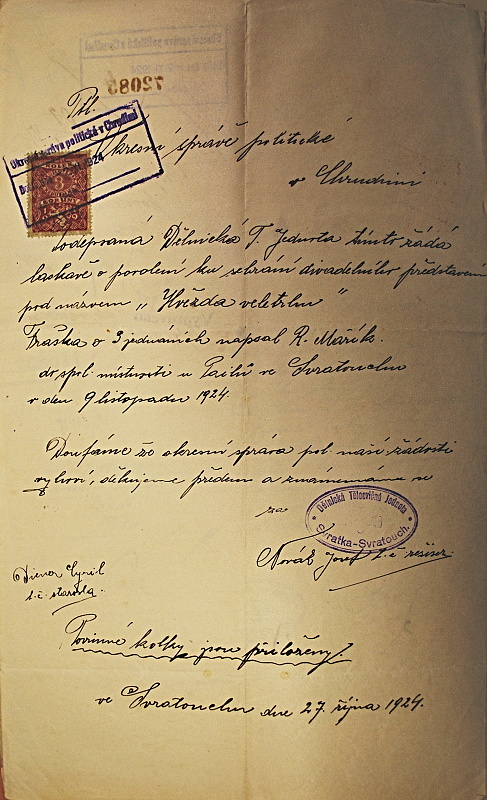 72085
Okresní správa politická v Chrudimi
1924
3
Okresní správě politické
v Chrudimi
Podepsaná Dělnická T. Jednota tímto žádá
laskavě o povolení ku sehrání divadelního představení
pod názvem „Hvězda veletrhu“
Fraška o 3 jednáních napsal R. Mařík.
do spol. místnosti u Pailů ve Svratouchu
v den 9 listopadu 1924.
Doufáme že okresní správa pol. naší žádosti
vyhoví, děkujeme předem a znamenáme se
za
Dělnická Tělocvičná Jednota
Svratka-Svratouch.
Novák Josef t.č režiser.
Diener Cyril
t.č. starosta.
Povinné kolky jsou přiloženy!
ve Svratouchu dne 27. října 1924.